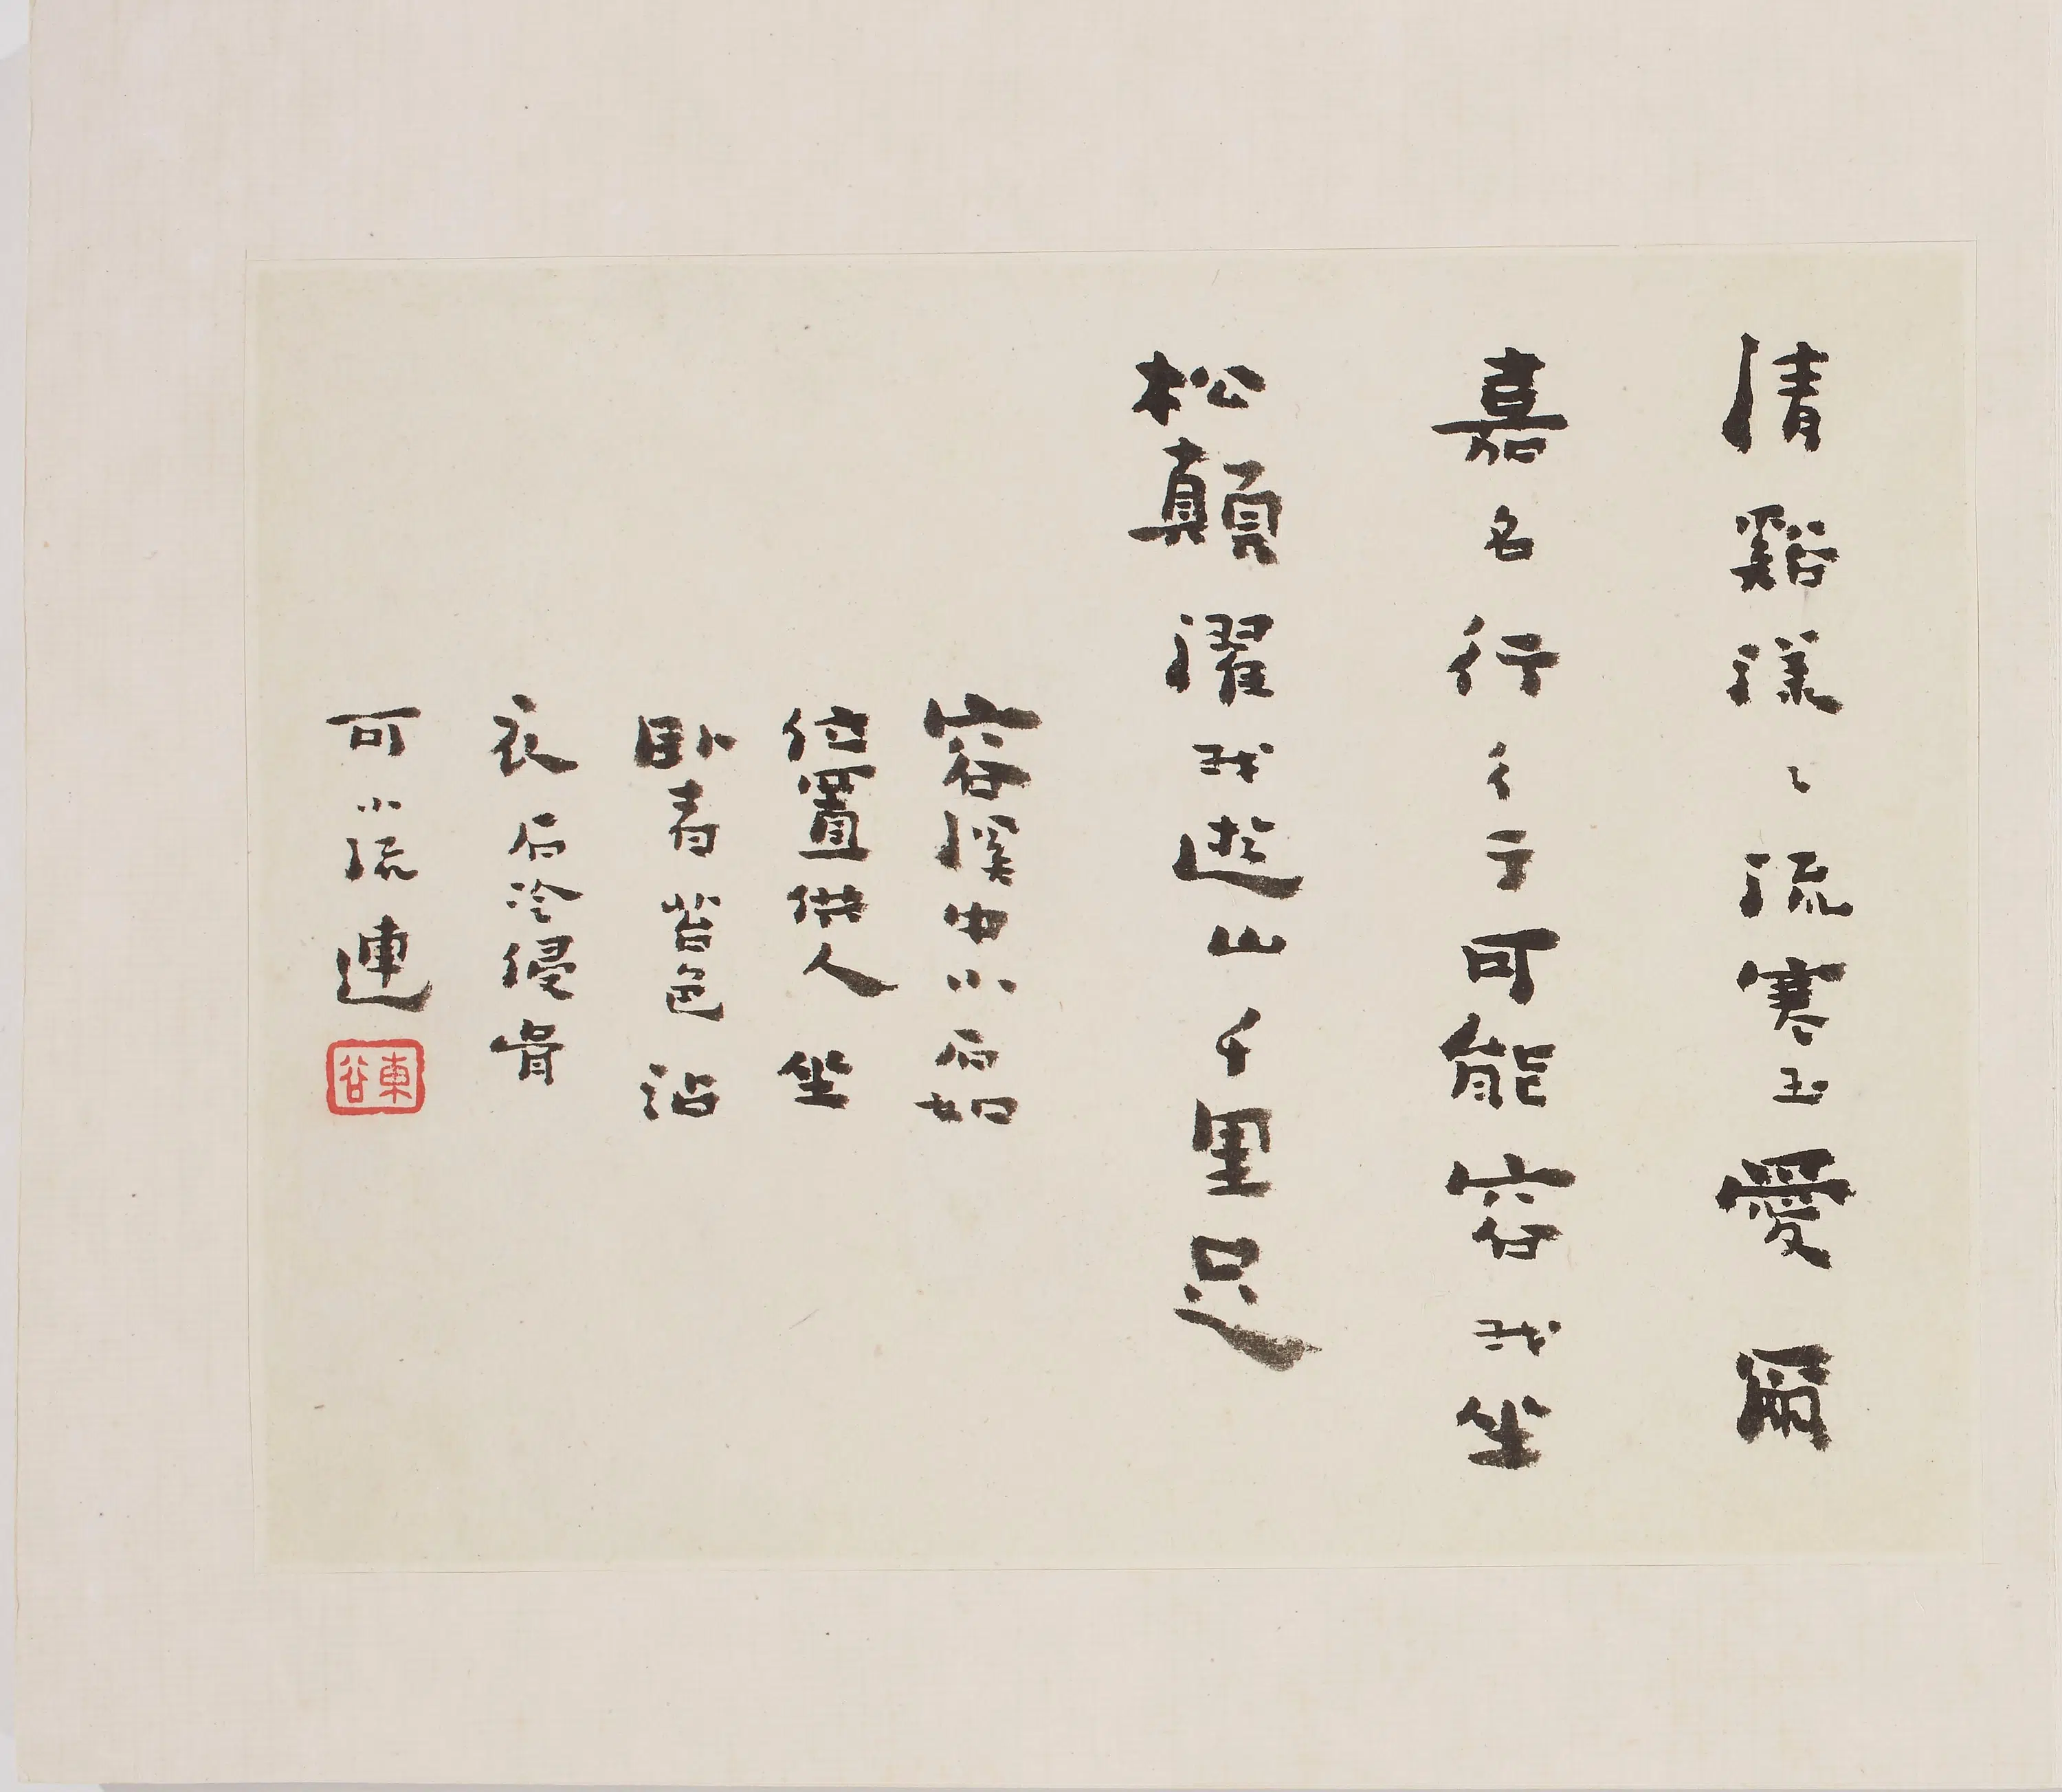 清谿漾〻流寒玉愛爾
嘉名行彳亍可能容我坐
松顛濯我遊山千里足
容溪中小石如
位置供人坐
卧青苔色沾
衣石冷侵骨
可小流連
東谷